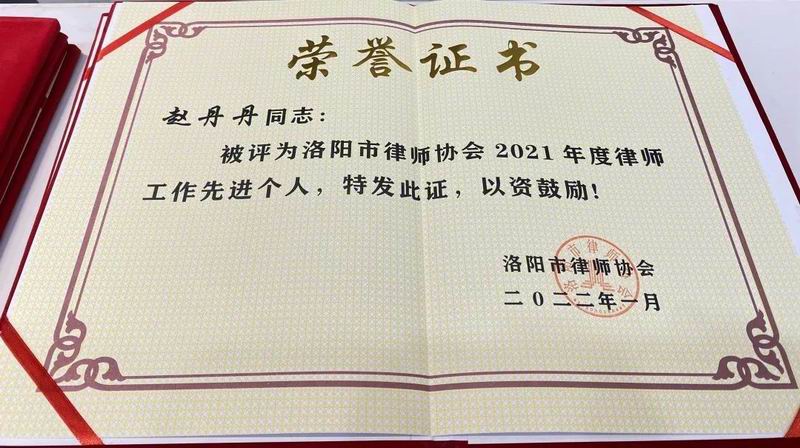 荣誉证书
赵丹丹同志：
被评为洛阳市律师协会2021年度律师
工作先进个人，特发此证，以资鼓励！
洛阳市律师协会
二0二二年一月
洛阳市律师协会